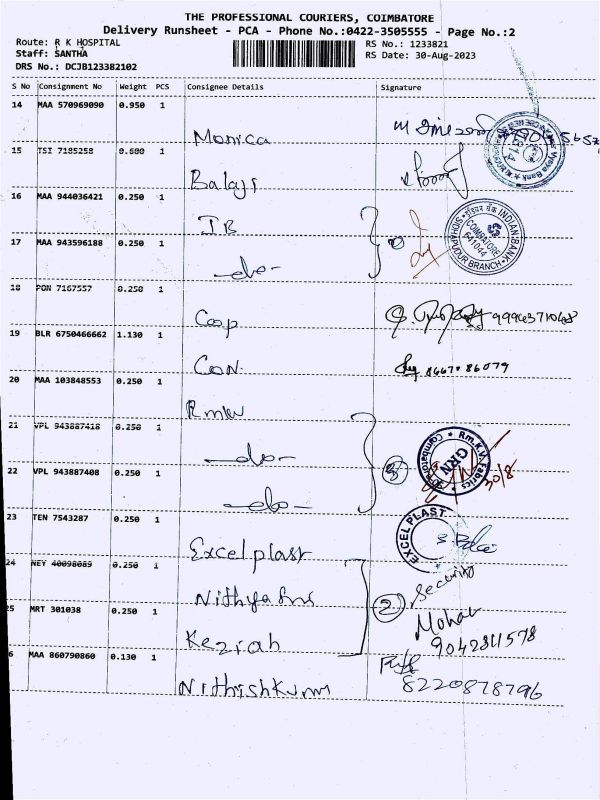 THE PROFESSIONAL COURIERS, COIMBATORE
Delivery Runsheet - PCA - Phone No.:0422-3505555 - Page No.:2
Route: R K HOSPITAL
Staff: SANTHA
DRS No.: DCJB123382102
RS No.: 1233821
RS Date: 30-Aug-2023
S No Consignment No Weight PCS Consignee Details Signature
14 MAA 570969090 0.950 1
Monica
15 TSI 7185258 0.600 1
Balaji
16 MAA 944036421 0.250 1
IB
17 MAA 943596188 0.250 1
-do-
INDIAN BANK
COIMBATORE
641044
BRANCH
18 PON 7167557 0.250 1
Coop
19 BLR 6750466662 1.130 1
CON.
20 MAA 103848553 0.250 1
Rmkv
21 VPL 943887418 0.250 1
-do-
22 VPL 943887408 0.250 1
-do-
3
Rm.K.V. Fabrics
Coimbatore
GRN
30/8
23 TEN 7543287 0.250 1
Excel plast
EXCEL PLAST
24 NEY 40098089 0.250 1
25 MRT 301038 0.250 1
Keziah
2
Security
Mohan
9042811578
6 MAA 860790860 0.130 1
Nithishkumar
8220878796